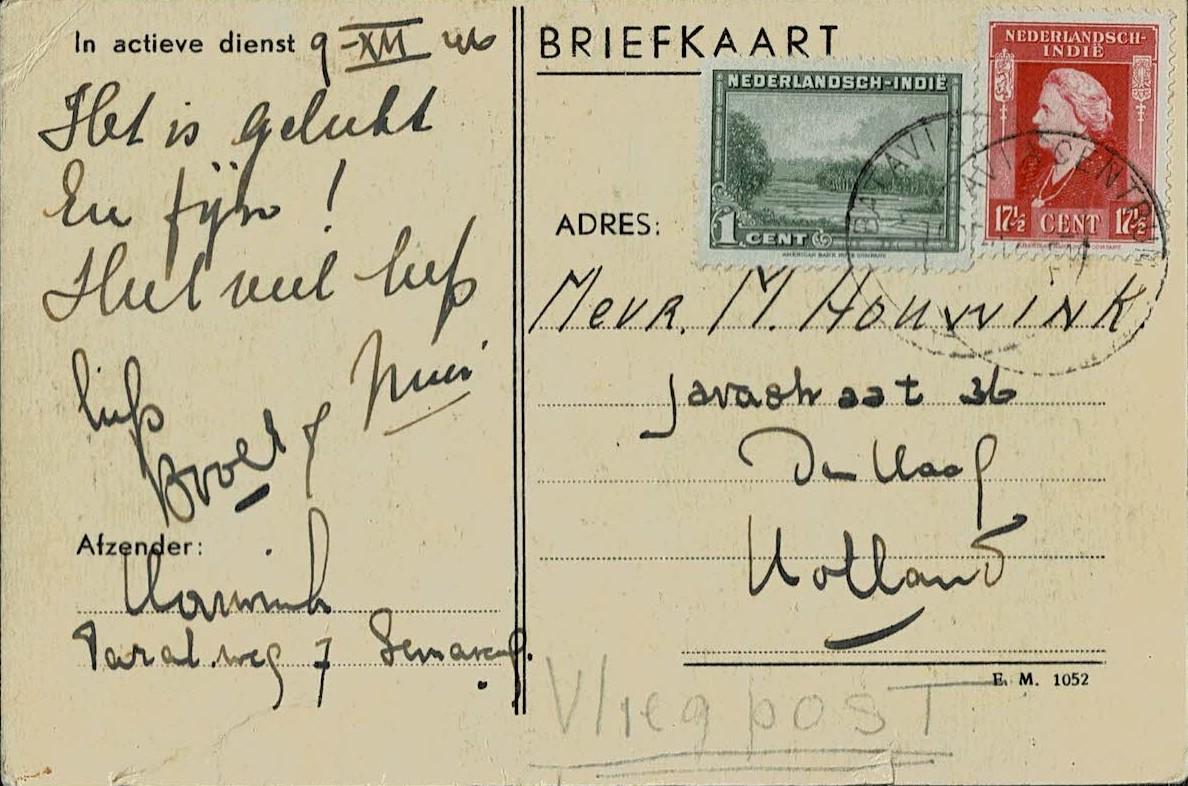 In actieve dienst 9-XII 46
Het is gelukt
En fijn !
Heel veel liefs
liefs
Afzender:
Houwink
Paral.weg 7 Semarang.
BRIEFKAART
NEDERLANDSCH-INDIË
1 CENT
AMERICAN BANK NOTE COMPANY
NEDERLANDSCH-
INDIË
17½ CENT 17½
BATAVIA CENTRUM
ADRES:
Mevr. M. HOUWINK.
Javastraat 36
Den Haag
Holland
E. M. 1052
Vliegpost